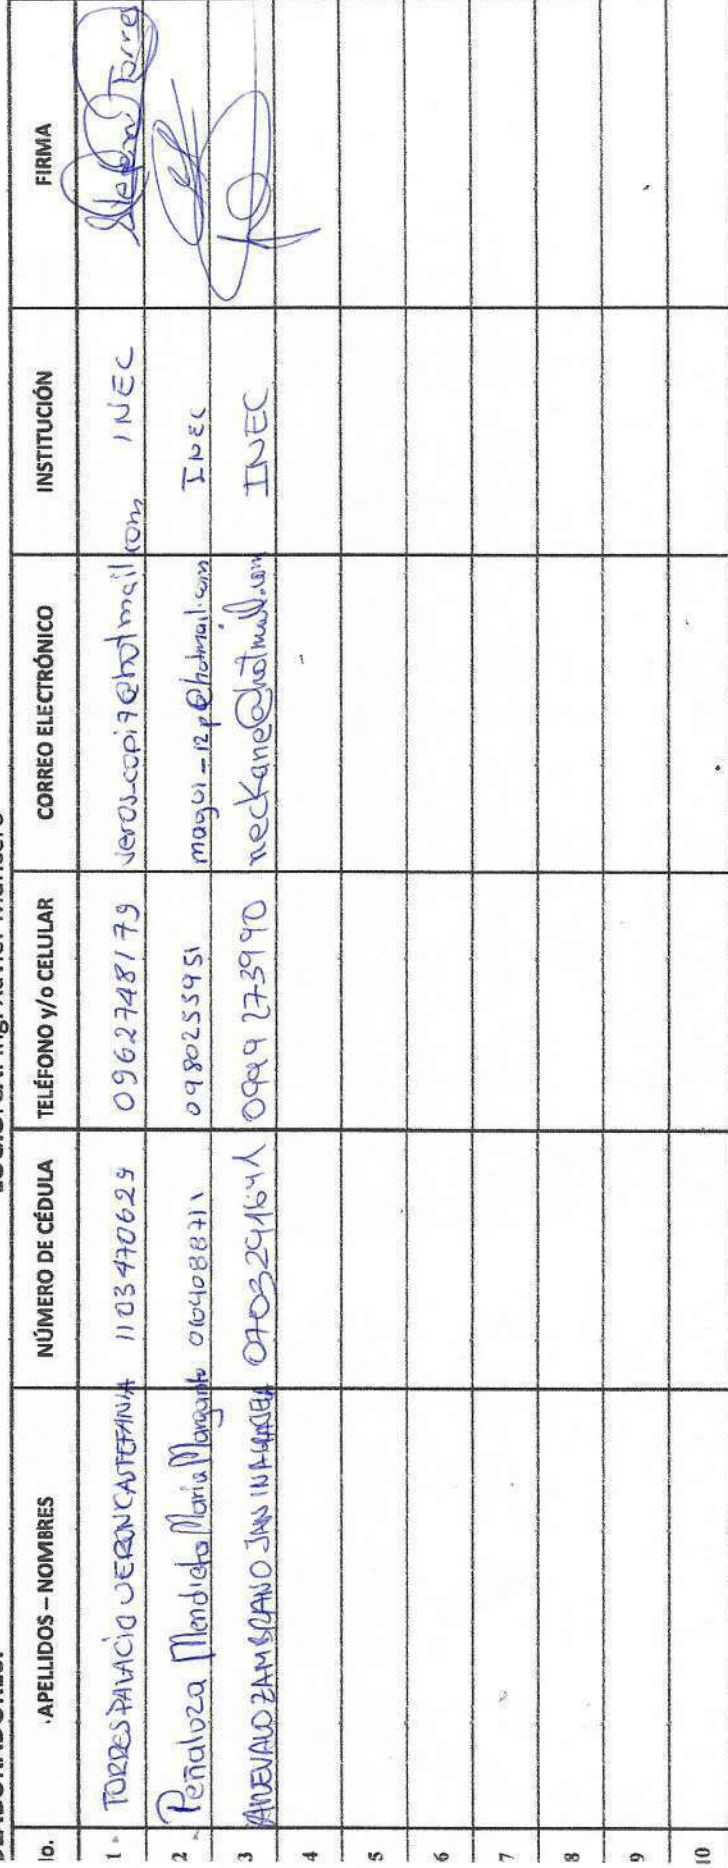 lo. APELLIDOS – NOMBRES NÚMERO DE CÉDULA TELÉFONO y/o CELULAR CORREO ELECTRÓNICO INSTITUCIÓN FIRMA
1 TORRES PALACIO VERONICA STEFANIA 1103470629 0962748179 INEC Stefani Torres
2 Peñaloza Mendieta Maria Margarita 0104088711 0980255951 magui-12p@hotmail.com INEC
3 AREVALO ZAMBRANO 0703291641 neckane@hotmail.com INEC
4
5
6
7
8
9
10